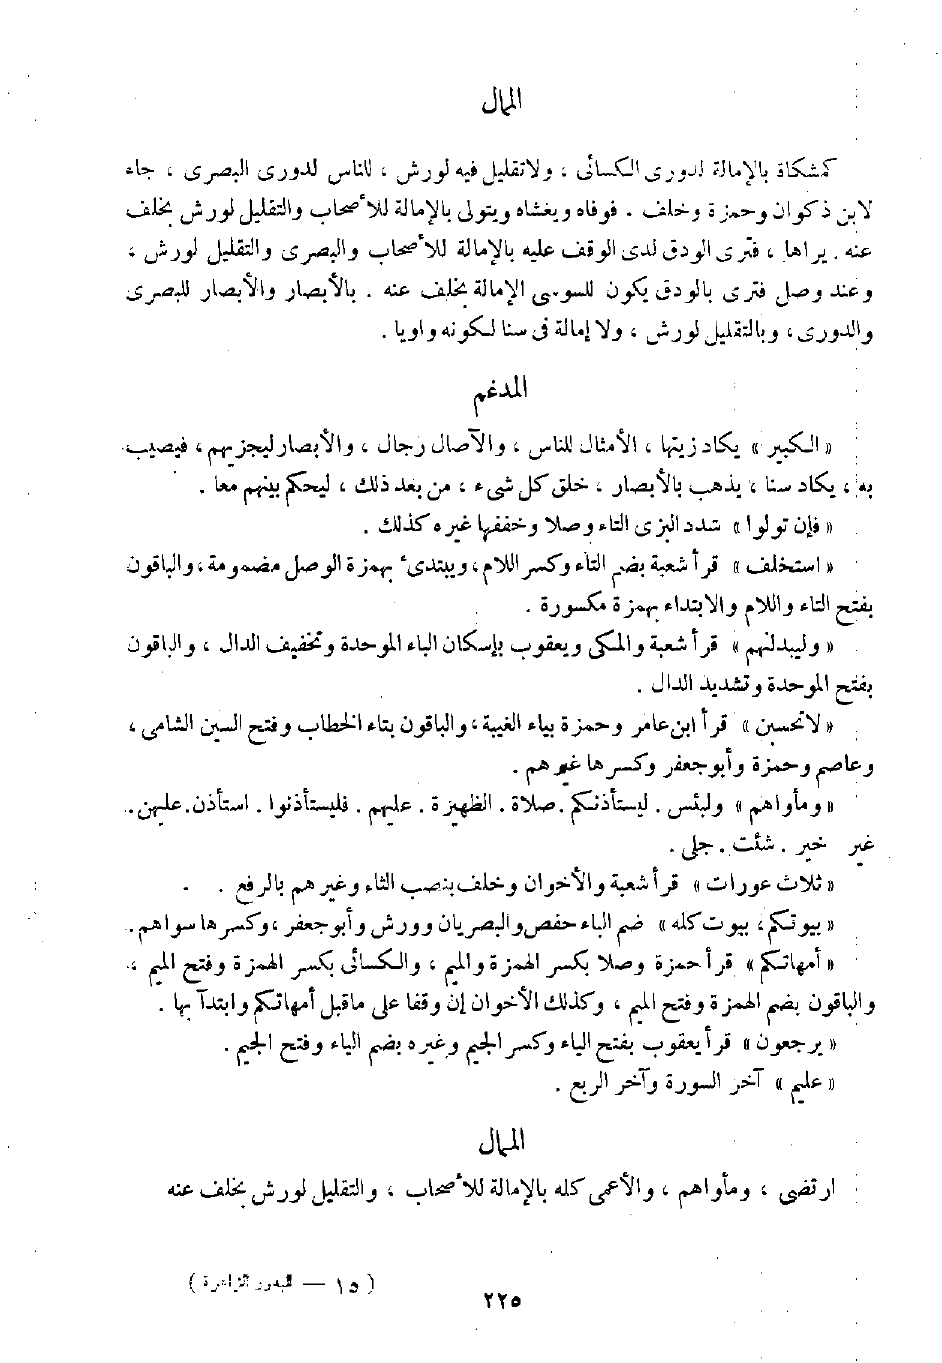 الممال
كمشكاة بالإمالة لدورى الكسائى ، ولا تقليل فيه لورش ، للناس لدورى البصرى ، جاء
لابن ذكوان وحمزة وخلف . فوفاه ويغشاه ويتولى بالإمالة للأصحاب والتقليل لورش بخلف
عنه . يراها ، فترى الودق لدى الوقف عليه بالإمالة للأصحاب والبصرى والتقليل لورش ،
وعند وصل فترى بالودق يكون للسوسى الإمالة بخلف عنه . بالأبصار والأبصار للبصرى
والدورى ، وبالتقليل لورش ، ولا إمالة فى سنا لكونه واويا .
المدغم
« الكبير » يكاد زيتها ، الأمثال للناس ، والآصال رجال ، والأبصار ليجزيهم ، فيصيب
به ، يكاد سنا ، يذهب بالأبصار ، خلق كل شىء ، من بعد ذلك ، ليحكم بينهم معا .
« فإن تولوا » شدد البزى التاء وصلا وخففها غيره كذلك .
« استخلف » قرأ شعبة بضم التاء وكسر اللام ، ويبتدئ بهمزة الوصل مضمومة ، والباقون
بفتح التاء واللام والابتداء بهمزة مكسورة .
« وليبدلنهم » قرأ شعبة والمكى ويعقوب بإسكان الباء الموحدة وتخفيف الدال ، والباقون
بفتح الموحدة وتشديد الدال .
« لا تحسبن » قرأ ابن عامر وحمزة بياء الغيبة ، والباقون بتاء الخطاب وفتح السين الشامى ،
وعاصم وحمزة وأبو جعفر وكسرها غيرهم .
« ومأواهم » ولبئس . ليستأذنكم . صلاة . الظهيرة . عليهم . فليستأذنوا . استأذن . عليهن .
غير خبر . شئت . جلى .
« ثلاث عورات » قرأ شعبة والأخوان وخلف بنصب الثاء وغيرهم بالرفع .
« بيوتكم ، بيوت كله » ضم الباء حفص والبصريان وورش وأبو جعفر ، وكسرها سواهم .
« أمهاتكم » قرأ حمزة وصلا بكسر الهمزة والميم ، والكسائى بكسر الهمزة وفتح الميم ،
والباقون بضم الهمزة وفتح الميم ، وكذلك الأخوان إن وقفا على ماقبل أمهاتكم وابتدآ بها .
« يرجعون » قرأ يعقوب بفتح الياء وكسر الجيم وغيره بضم الياء وفتح الجيم .
« عليم » آخر السورة وآخر الربع .
الممال
ارتضى ، ومأواهم ، والأعمى كله بالإمالة للأصحاب ، والتقليل لورش بخلف عنه
( ١٥ — البدور الزاهرة )
٢٢٥